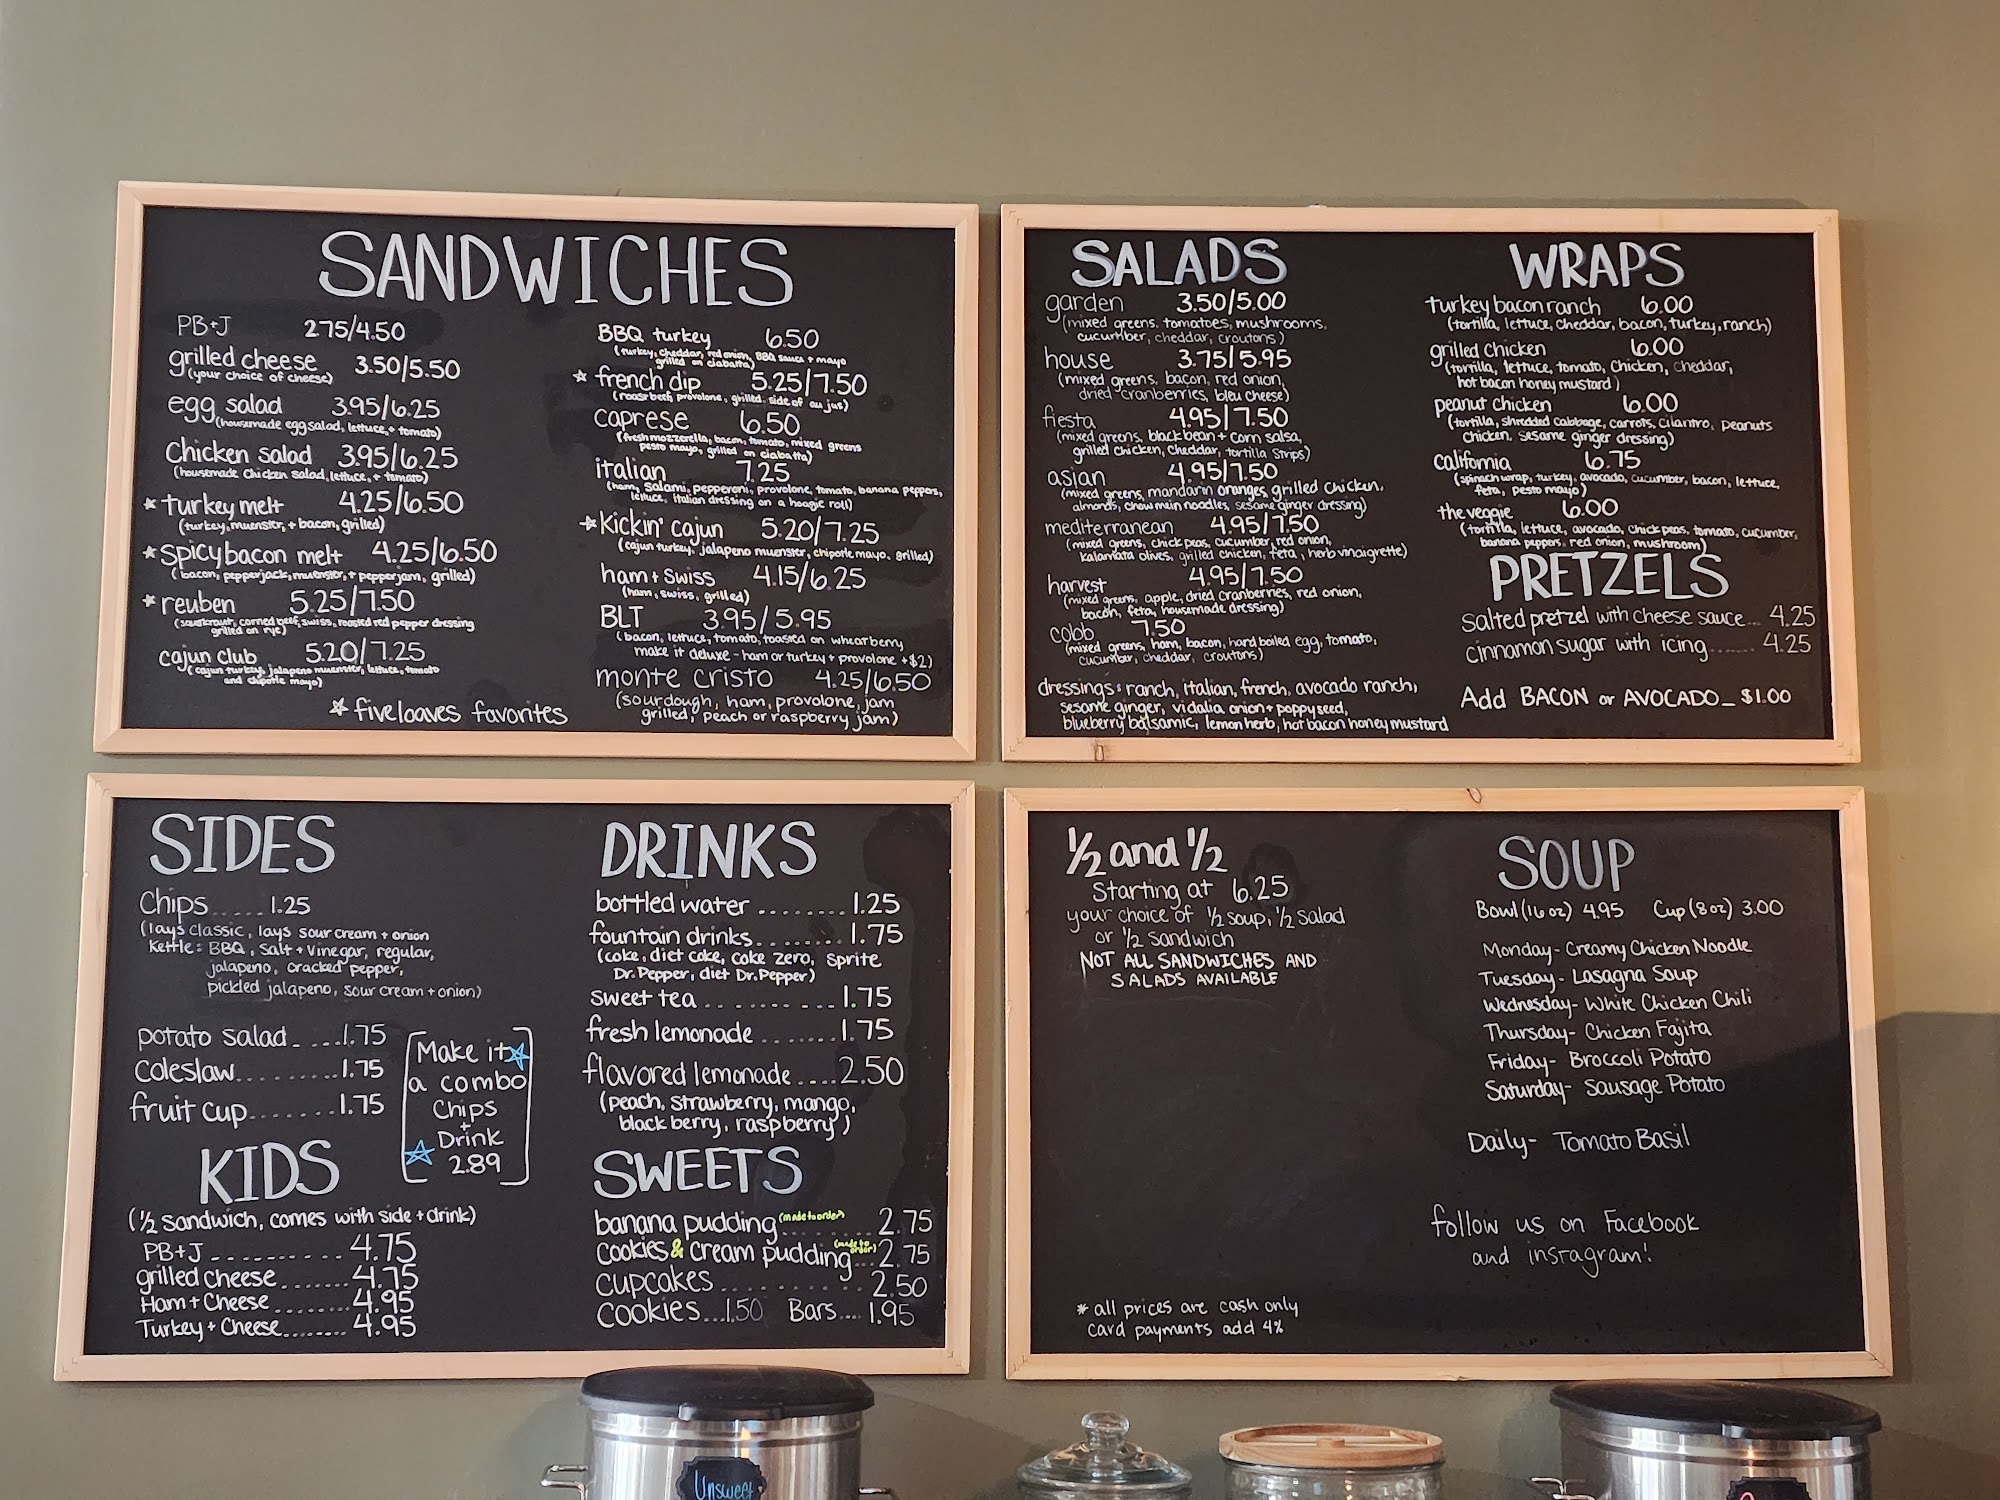 SANDWICHES
PB+J 275/4.50
grilled cheese 3.50/5.50
(your choice of cheese)
egg salad 3.95/6.25
(housemade egg salad, lettuce, + tomato)
Chicken salad 3.95/6.25
(housemade Chicken salad, lettuce, + tomato)
☆ turkey melt 4.25/6.50
(turkey, muenster, + bacon, grilled)
☆ spicy bacon melt 4.25/6.50
(bacon, pepperjack, muenster, + pepper jam, grilled)
☆ reuben 5.25/7.50
(sauerkraut, corned beef, swiss, roasted red pepper dressing
grilled on rye)
cajun club 5.20/7.25
(cajun turkey, jalapeno muenster, lettuce, tomato
and chipotle mayo)
☆ fiveloaves favorites
BBQ turkey 6.50
(turkey, cheddar, red onion, BBQ sauce + mayo
grilled on ciabatta)
☆ french dip 5.25/7.50
(roast beef, provolone, grilled. side of au jus)
caprese 6.50
(fresh mozzerella, bacon, tomato, mixed greens
pesto mayo, grilled on ciabatta)
italian 7.25
(ham, salami, pepperoni, provolone, tomato, banana peppers,
lettuce, italian dressing on a hoagie roll)
☆ kickin' cajun 5.20/7.25
(cajun turkey, jalapeno muenster, chipotle mayo. grilled)
ham + swiss 4.15/6.25
(ham, swiss, grilled)
BLT 3.95/5.95
(bacon, lettuce, tomato, toasted on wheatberry
make it deluxe - ham or turkey + provolone +$2)
monte cristo 4.25/6.50
(sourdough, ham, provolone, jam
grilled, peach or raspberry jam)
SALADS
garden 3.50/5.00
(mixed greens, tomatoes, mushrooms,
cucumber, cheddar, croutons)
house 3.75/5.95
(mixed greens, bacon, red onion,
dried cranberries, bleu cheese)
fiesta 4.95/7.50
(mixed greens, black bean + corn salsa,
grilled chicken, cheddar, tortilla strips)
asian 4.95/7.50
(mixed greens, mandarin oranges, grilled chicken,
almonds, chow mein noodles, sesame ginger dressing)
mediterranean 4.95/7.50
(mixed greens, chick peas, cucumber, red onion,
kalamata olives, grilled chicken, feta, herb vinaigrette)
harvest 4.95/7.50
(mixed greens, apple, dried cranberries, red onion,
bacon, feta, housemade dressing)
cobb 7.50
(mixed greens, ham, bacon, hard boiled egg, tomato,
cucumber, cheddar, croutons)
dressings: ranch, italian, french, avocado ranch,
sesame ginger, vidalia onion + poppyseed,
blueberry balsamic, lemon herb, hot bacon honey mustard
WRAPS
turkey bacon ranch 6.00
(tortilla, lettuce, cheddar, bacon, turkey, ranch)
grilled chicken 6.00
(tortilla, lettuce, tomato, chicken, cheddar,
hot bacon honey mustard)
peanut chicken 6.00
(tortilla, shredded cabbage, carrots, cilantro, peanuts
chicken, sesame ginger dressing)
california 6.75
(spinach wrap, turkey, avocado, cucumber, bacon, lettuce,
feta, pesto mayo)
the veggie 6.00
(tortilla, lettuce, avocado, chick peas, tomato, cucumber,
banana peppers, red onion, mushroom)
PRETZELS
salted pretzel with cheese sauce... 4.25
cinnamon sugar with icing....... 4.25
Add BACON or AVOCADO_ $1.00
SIDES
Chips..... 1.25
(lays classic, lays sour cream + onion
kettle: BBQ, salt + vinegar, regular,
jalapeno, cracked pepper,
pickled jalapeno, sour cream + onion)
potato salad.....1.75
coleslaw.........1.75
fruit cup.......1.75
Make it☆
a combo
Chips
+
Drink
☆ 2.89
KIDS
(½ sandwich, comes with side + drink)
PB+J........... 4.75
grilled cheese....... 4.75
Ham + Cheese........ 4.95
Turkey + Cheese........ 4.95
DRINKS
bottled water ........ 1.25
fountain drinks........ 1.75
(coke, diet coke, coke zero, sprite
Dr. Pepper, diet Dr. Pepper)
sweet tea .......... 1.75
fresh lemonade ....... 1.75
flavored lemonade....2.50
(peach, strawberry, mango,
black berry, raspberry)
SWEETS
banana pudding (made to order)...... 2.75
cookies & cream pudding (made to order)...2.75
cupcakes .......... 2.50
cookies...1.50 Bars.... 1.95
½ and ½
Starting at 6.25
your choice of ½ soup, ½ salad
or ½ sandwich
NOT ALL SANDWICHES AND
SALADS AVAILABLE
* all prices are cash only
card payments add 4%
SOUP
Bowl (16 oz) 4.95 Cup (8 oz) 3.00
Monday- Creamy Chicken Noodle
Tuesday- Lasagna Soup
Wednesday- White Chicken Chili
Thursday- Chicken Fajita
Friday- Broccoli Potato
Saturday- Sausage Potato
Daily- Tomato Basil
follow us on Facebook
and instagram!
Unsweet